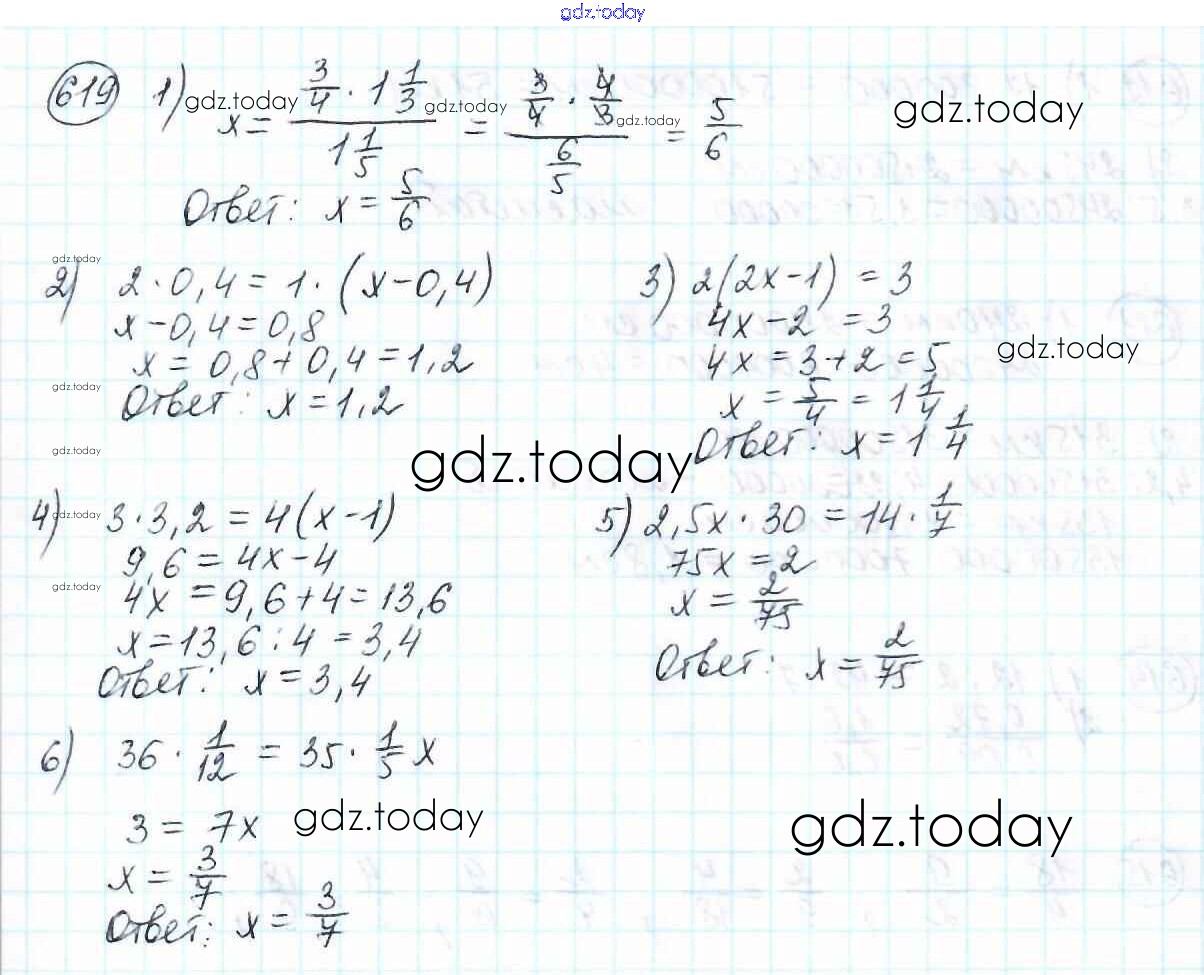 gdz.today
619 1) x = (3/4 · 1 1/3)/(1 1/5) = (3/4 · 4/3)/(6/5) = 5/6
gdz.today gdz.today gdz.today gdz.today
Ответ: x = 5/6
gdz.today
2) 2 · 0,4 = 1 · (x – 0,4)
x – 0,4 = 0,8
x = 0,8 + 0,4 = 1,2
gdz.today
Ответ: x = 1,2
3) 2(2x – 1) = 3
4x – 2 = 3
gdz.today
4x = 3 + 2 = 5
x = 5/4 = 1 1/4
Ответ: x = 1 1/4
gdz.today
gdz.today
4) 3 · 3,2 = 4(x – 1)
gdz.today
9,6 = 4x – 4
gdz.today
4x = 9,6 + 4 = 13,6
x = 13,6 : 4 = 3,4
Ответ: x = 3,4
5) 2,5x · 30 = 14 · 1/7
75x = 2
x = 2/75
Ответ: x = 2/75
6) 36 · 1/12 = 35 · 1/5 x
3 = 7x
gdz.today
gdz.today
x = 3/7
Ответ: x = 3/7